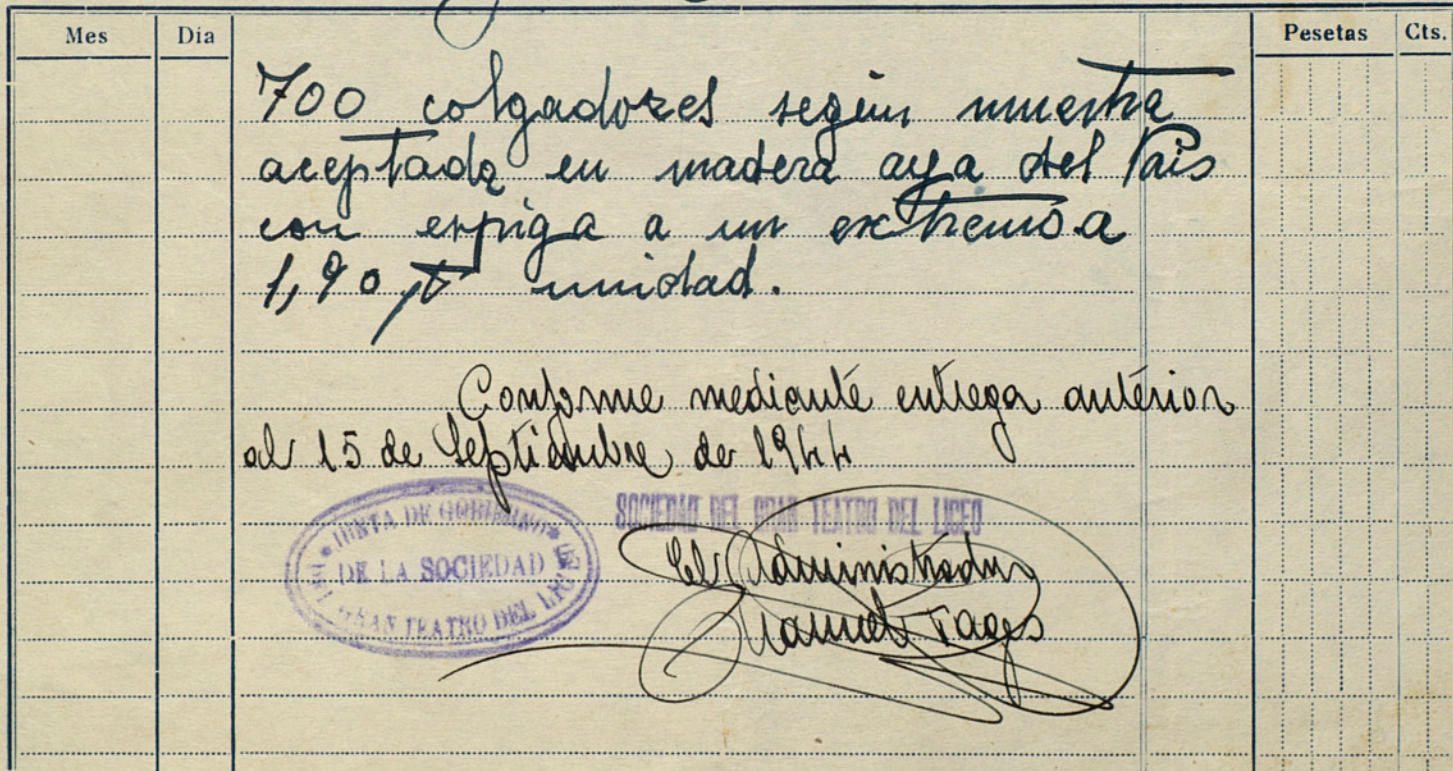 Mes Día Pesetas Cts.
700 colgadores según muestra
aceptada en madera aya del Pais
con espiga a un extremo a
1,90 pt unidad.
Conforme mediante entrega anterior
al 15 de Septiembre de 1944
SOCIEDAD DEL GRAN TEATRO DEL LICEO
JUNTA DE GOBIERNO
DE LA SOCIEDAD
DEL GRAN TEATRO DEL LICEO
El Administrador
Manuel